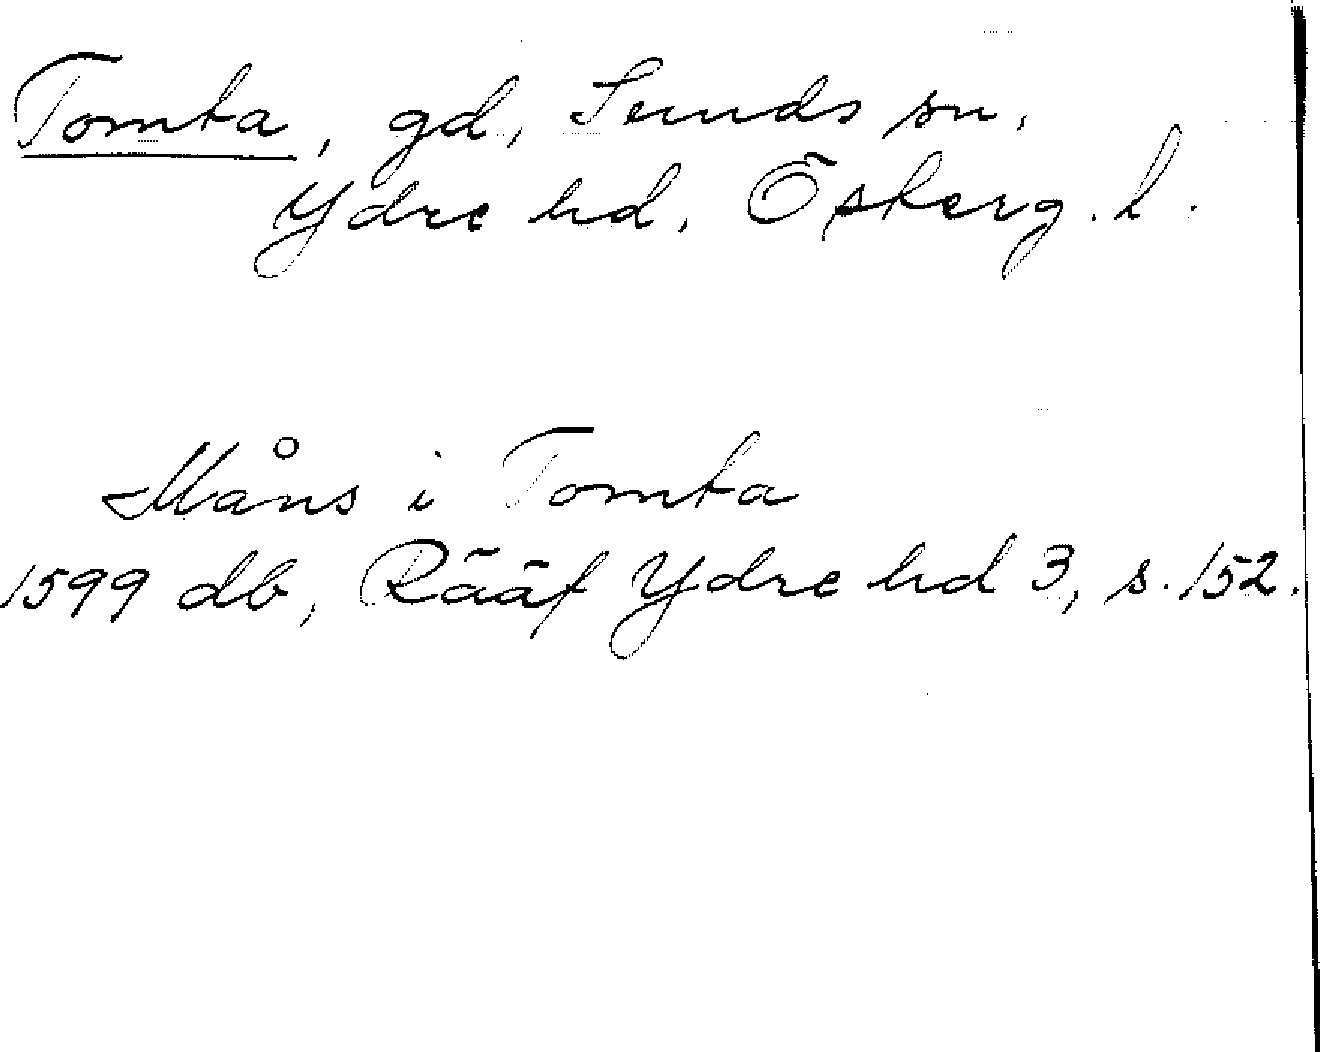 Tomta, gd, Sunds sn,
Ydre hd, Östergl.
Måns i Tomta
1599 db, Rääf Ydre hd 3, s. 152.